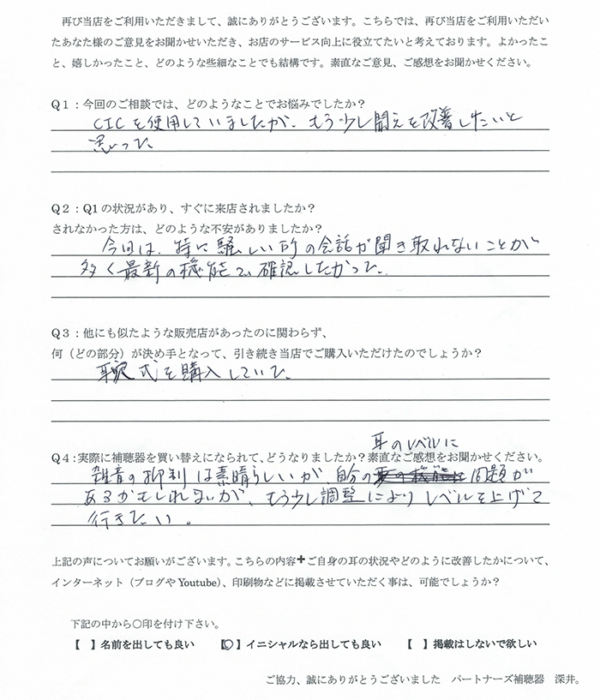 再び当店をご利用いただきまして、誠にありがとうございます。こちらでは、再び当店をご利用いただい
たあなた様のご意見をお聞かせいただき、お店のサービス向上に役立てたいと考えております。よかったこ
と、嬉しかったこと、どのような些細なことでも結構です。素直なご意見、ご感想をお聞かせください。
Q1：今回のご相談では、どのようなことでお悩みでしたか？
CICを使用していましたが、もう少し聞えを改善したいと
思った
Q2：Q1の状況があり、すぐに来店されましたか？
されなかった方は、どのような不安がありましたか？
今回は、特に騒しい所の会話が聞き取れないことが
多く最新の機能で、確認したかった。
Q3：他にも似たような販売店があったのに関わらず、
何（どの部分）が決め手となって、引き続き当店でご購入いただけたのでしょうか？
耳穴式を購入していた。
Q4：実際に補聴器を買い替えになられて、どうなりましたか？素直なご感想をお聞かせください。
耳のレベルに
雑音の抑制は素晴らしいが、自分の問題が
あるかもしれないが、もう少し調整によりレベルを上げて
行きたい。
上記の声についてお願いがございます。こちらの内容＋ご自身の耳の状況やどのように改善したかについて、
インターネット（ブログやYoutube）、印刷物などに掲載させていただく事は、可能でしょうか？
下記の中から〇印を付け下さい。
【　】名前を出しても良い　【〇】イニシャルなら出しても良い　【　】掲載はしないで欲しい
ご協力、誠にありがとうございました　パートナーズ補聴器　深井。